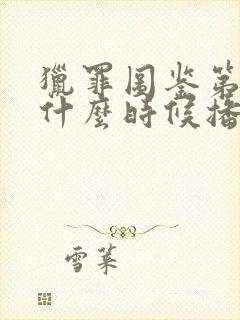 獵罪图鉴第
什麼時候播
雪莱